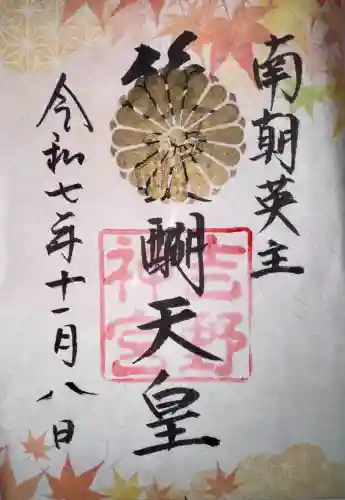 南朝英主
醐天皇
吉野神宮
令和七年十一月八日